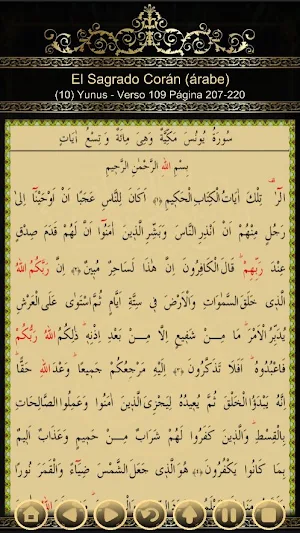 El Sagrado Corán (árabe)
(10) Yunus - Verso 109 Página 207-220
سُورَةُ يُونُسَ مَكِّيَّةٌ وَهِىَ مِائَةٌ وَتِسْعُ اٰيَاتٍ
بِسْمِ اللهِ الرَّحْمٰنِ الرَّحِيمِ
الٓرٰ تِلْكَ اٰيَاتُ الْكِتَابِ الْحَكِيمِ ﴿١﴾ اَكَانَ لِلنَّاسِ عَجَبًا اَنْ اَوْحَيْنَٓا اِلٰى
رَجُلٍ مِنْهُمْ اَنْ اَنْذِرِ النَّاسَ وَبَشِّرِ الَّذِينَ اٰمَنُٓوا اَنَّ لَهُمْ قَدَمَ صِدْقٍ
عِنْدَ رَبِّهِمْ قَالَ الْكَافِرُونَ اِنَّ هٰذَا لَسَاحِرٌ مُبِينٌ ﴿٢﴾ اِنَّ رَبَّكُمُ اللهُ
الَّذِى خَلَقَ السَّمٰوَاتِ وَالْاَرْضَ فِى سِتَّةِ اَيَّامٍ ثُمَّ اسْتَوٰى عَلَى الْعَرْشِ
يُدَبِّرُ الْاَمْرَ مَا مِنْ شَفِيعٍ اِلَّا مِنْ بَعْدِ اِذْنِهِ ذٰلِكُمُ اللهُ رَبُّكُمْ
فَاعْبُدُوهُ اَفَلَا تَذَكَّرُونَ ﴿٣﴾ اِلَيْهِ مَرْجِعُكُمْ جَمِيعًا وَعْدَ اللهِ حَقًّا
اِنَّهُ يَبْدَؤُا الْخَلْقَ ثُمَّ يُعِيدُهُ لِيَجْزِىَ الَّذِينَ اٰمَنُوا وَعَمِلُوا الصَّالِحَاتِ
بِالْقِسْطِ وَالَّذِينَ كَفَرُوا لَهُمْ شَرَابٌ مِنْ حَمِيمٍ وَعَذَابٌ اَلِيمٌ
بِمَا كَانُوا يَكْفُرُونَ ﴿٤﴾ هُوَ الَّذِى جَعَلَ الشَّمْسَ ضِيَٓاءً وَالْقَمَرَ نُورًا